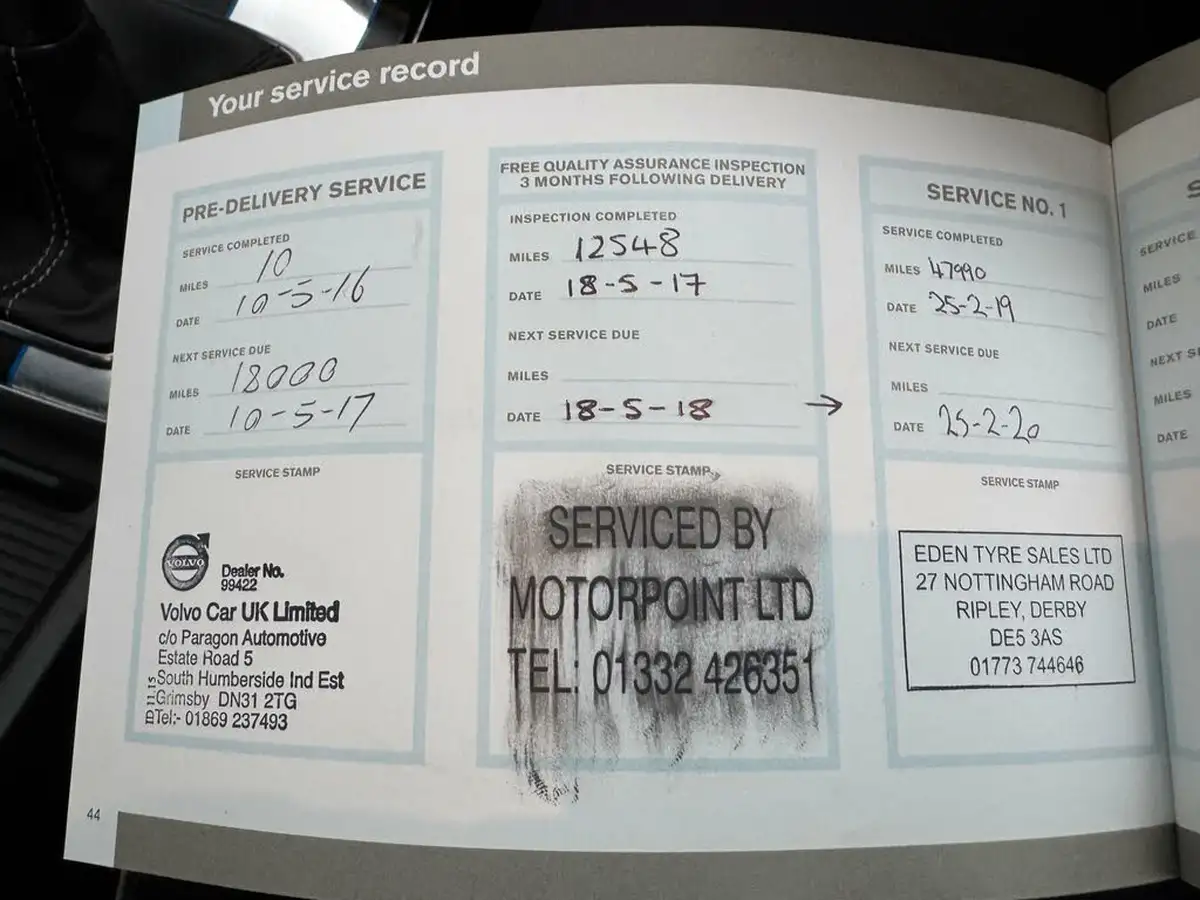 Your service record
PRE-DELIVERY SERVICE
SERVICE COMPLETED
MILES 10
DATE 10-5-16
NEXT SERVICE DUE
MILES 18000
DATE 10-5-17
SERVICE STAMP
VOLVO
Dealer No.
99422
Volvo Car UK Limited
c/o Paragon Automotive
Estate Road 5
South Humberside Ind Est
Grimsby DN31 2TG
Tel:- 01869 237493
FREE QUALITY ASSURANCE INSPECTION
3 MONTHS FOLLOWING DELIVERY
INSPECTION COMPLETED
MILES 12548
DATE 18-5-17
NEXT SERVICE DUE
MILES
DATE 18-5-18
SERVICE STAMP
SERVICED BY
MOTORPOINT LTD
TEL: 01332 426351
→
SERVICE NO. 1
SERVICE COMPLETED
MILES 47990
DATE 25-2-19
NEXT SERVICE DUE
MILES
DATE 25-2-20
SERVICE STAMP
EDEN TYRE SALES LTD
27 NOTTINGHAM ROAD
RIPLEY, DERBY
DE5 3AS
01773 744646
SERVICE
MILES
DATE
NEXT
MILES
DATE
44